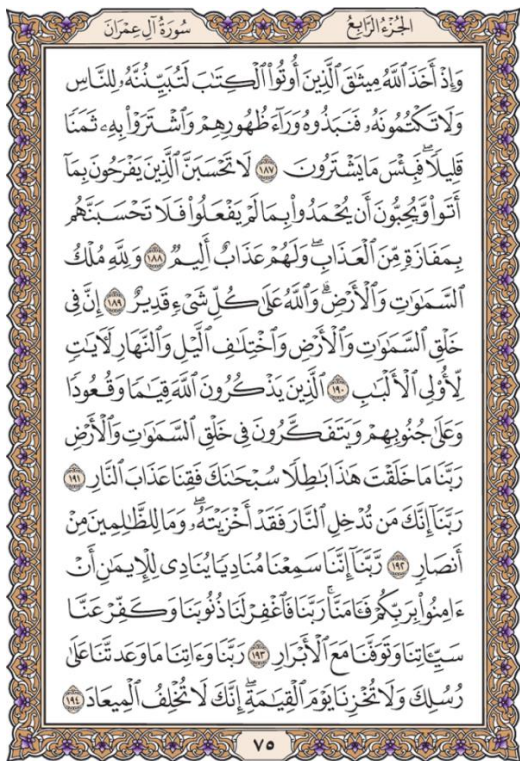 الجُزْءُ الرَّابِعُ سُورَةُ آلِ عِمْرَانَ
وَإِذْ أَخَذَ ٱللَّهُ مِيثَٰقَ ٱلَّذِينَ أُوتُوا۟ ٱلْكِتَٰبَ لَتُبَيِّنُنَّهُۥ لِلنَّاسِ
وَلَا تَكْتُمُونَهُۥ فَنَبَذُوهُ وَرَآءَ ظُهُورِهِمْ وَٱشْتَرَوْا۟ بِهِۦ ثَمَنًا
قَلِيلًا ۖ فَبِئْسَ مَا يَشْتَرُونَ ١٨٧ لَا تَحْسَبَنَّ ٱلَّذِينَ يَفْرَحُونَ بِمَآ
أَتَوا۟ وَّيُحِبُّونَ أَن يُحْمَدُوا۟ بِمَا لَمْ يَفْعَلُوا۟ فَلَا تَحْسَبَنَّهُم
بِمَفَازَةٍ مِّنَ ٱلْعَذَابِ ۖ وَلَهُمْ عَذَابٌ أَلِيمٌ ١٨٨ وَلِلَّهِ مُلْكُ
ٱلسَّمَٰوَٰتِ وَٱلْأَرْضِ ۗ وَٱللَّهُ عَلَىٰ كُلِّ شَىْءٍ قَدِيرٌ ١٨٩ إِنَّ فِى
خَلْقِ ٱلسَّمَٰوَٰتِ وَٱلْأَرْضِ وَٱخْتِلَٰفِ ٱلَّيْلِ وَٱلنَّهَارِ لَـَٔايَٰتٍ
لِّأُو۟لِى ٱلْأَلْبَٰبِ ١٩٠ ٱلَّذِينَ يَذْكُرُونَ ٱللَّهَ قِيَٰمًا وَقُعُودًا
وَعَلَىٰ جُنُوبِهِمْ وَيَتَفَكَّرُونَ فِى خَلْقِ ٱلسَّمَٰوَٰتِ وَٱلْأَرْضِ
رَبَّنَا مَا خَلَقْتَ هَٰذَا بَٰطِلًا سُبْحَٰنَكَ فَقِنَا عَذَابَ ٱلنَّارِ ١٩١
رَبَّنَآ إِنَّكَ مَن تُدْخِلِ ٱلنَّارَ فَقَدْ أَخْزَيْتَهُۥ ۖ وَمَا لِلظَّٰلِمِينَ مِنْ
أَنصَارٍ ١٩٢ رَّبَّنَآ إِنَّنَا سَمِعْنَا مُنَادِيًا يُنَادِى لِلْإِيمَٰنِ أَنْ
ءَامِنُوا۟ بِرَبِّكُمْ فَـَٔامَنَّا ۚ رَبَّنَا فَٱغْفِرْ لَنَا ذُنُوبَنَا وَكَفِّرْ عَنَّا
سَيِّـَٔاتِنَا وَتَوَفَّنَا مَعَ ٱلْأَبْرَارِ ١٩٣ رَبَّنَا وَءَاتِنَا مَا وَعَدتَّنَا عَلَىٰ
رُسُلِكَ وَلَا تُخْزِنَا يَوْمَ ٱلْقِيَٰمَةِ ۗ إِنَّكَ لَا تُخْلِفُ ٱلْمِيعَادَ ١٩٤
٧٥